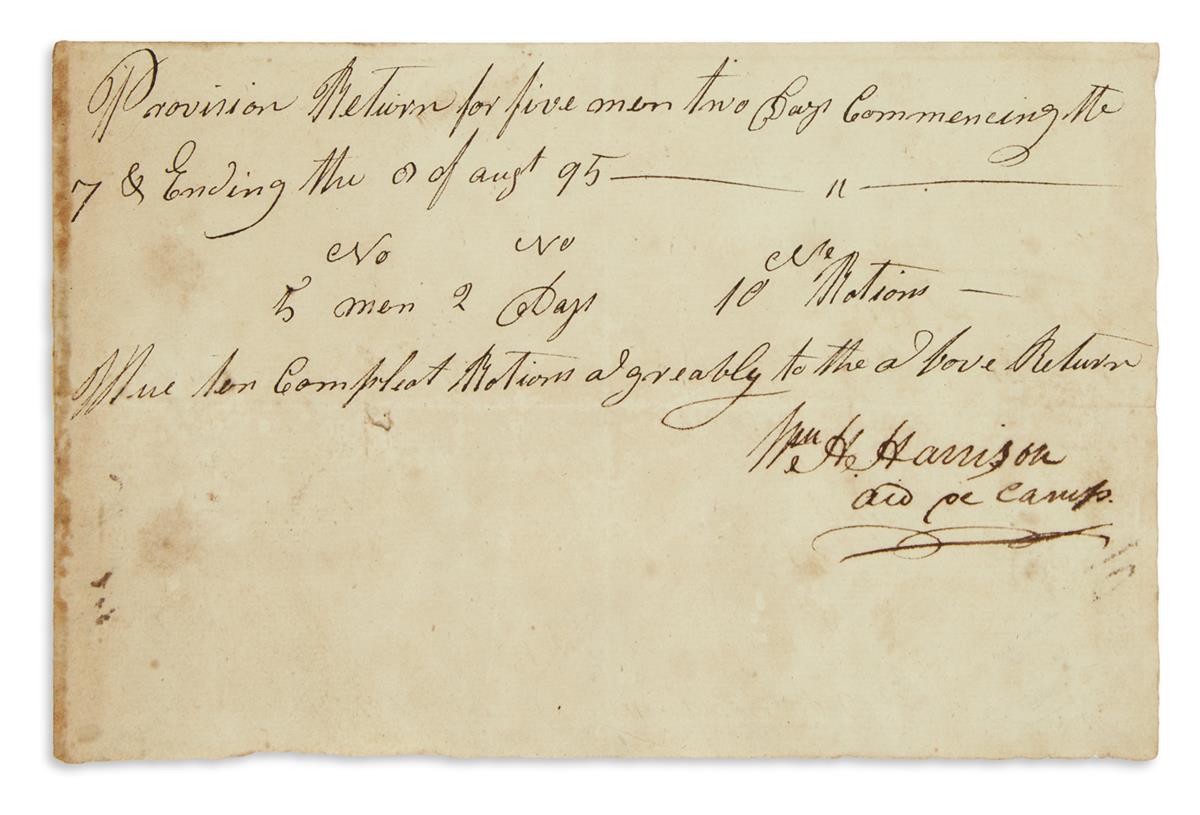 Provision Return for five men two Days Commencing the
7 & Ending the 8 of augt 95 — " —
No No No
5 men 2 Days 10 Rations —
Issue ten Compleat Rations agreably to the above Return
Wm H Harrison
aid de Camp.